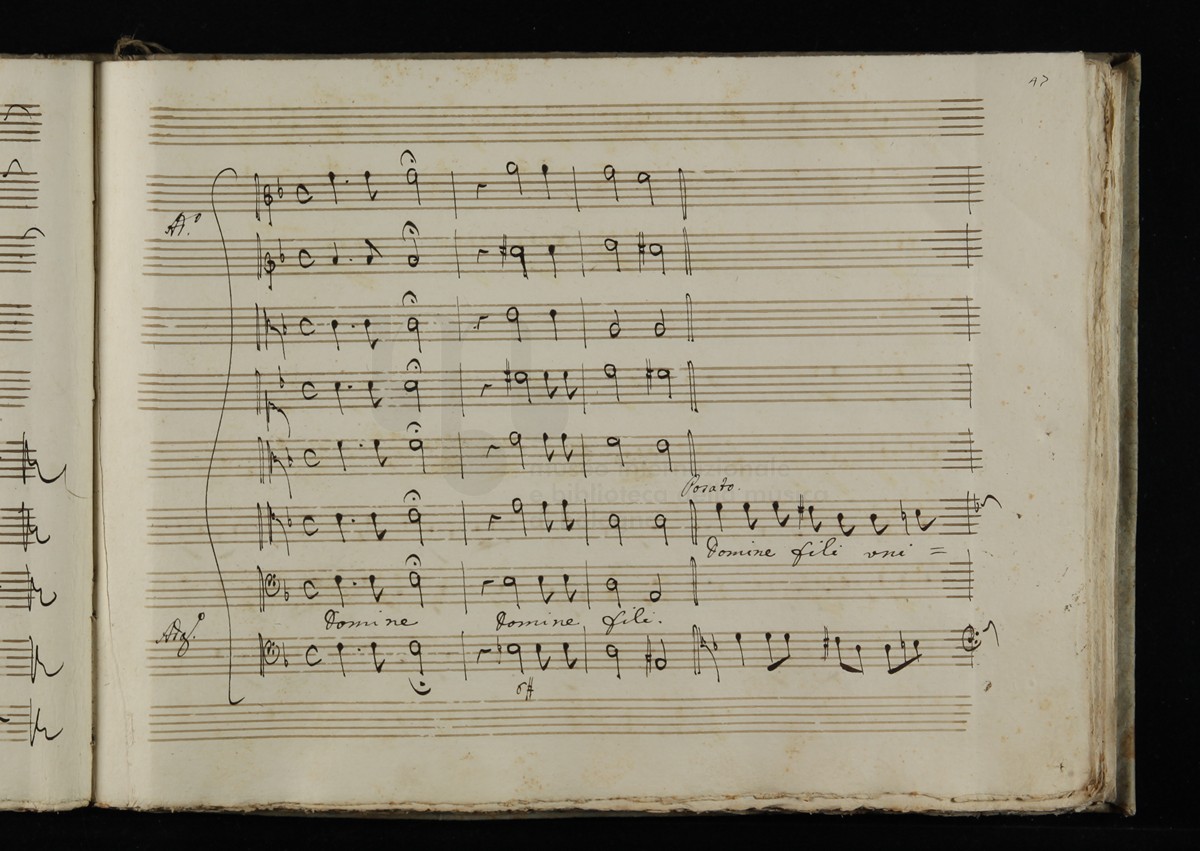 47
A.º
Posato.
Domine fili uni =
Domine Domine fili.
Adg.º
6#